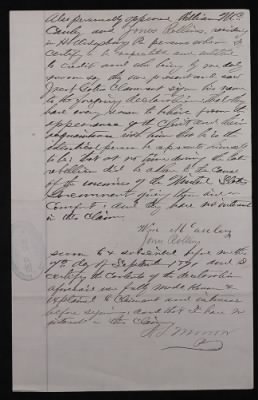 Also personally appeared William Mc
Cauley and James Rollins, residing
in Hollidaysburg Pa persons whom I
certify to be respectable and entitled
to credit and who being by me duly
sworn say they were present and saw
Jacob Colie Claimant sign his name
to the foregoing declaration that they
have every reason to believe from the
appearance of the Claimant and their
acquaintance with him that he is the
identical person he represents himself
to be that at no time during the late
rebellion did he adhere to the Cause
of the enemies of the United States
Government giving them aid or
Comfort; and they have no interest
in this Claim.
Wm McCauley
James Rollins
sworn to & subscribed before me this
day of September 1891 and I
certify the contents of the declaration
aforesaid was fully made known &
explained to Claimant and witnesses
before signing and that I have no
interest in this Claim